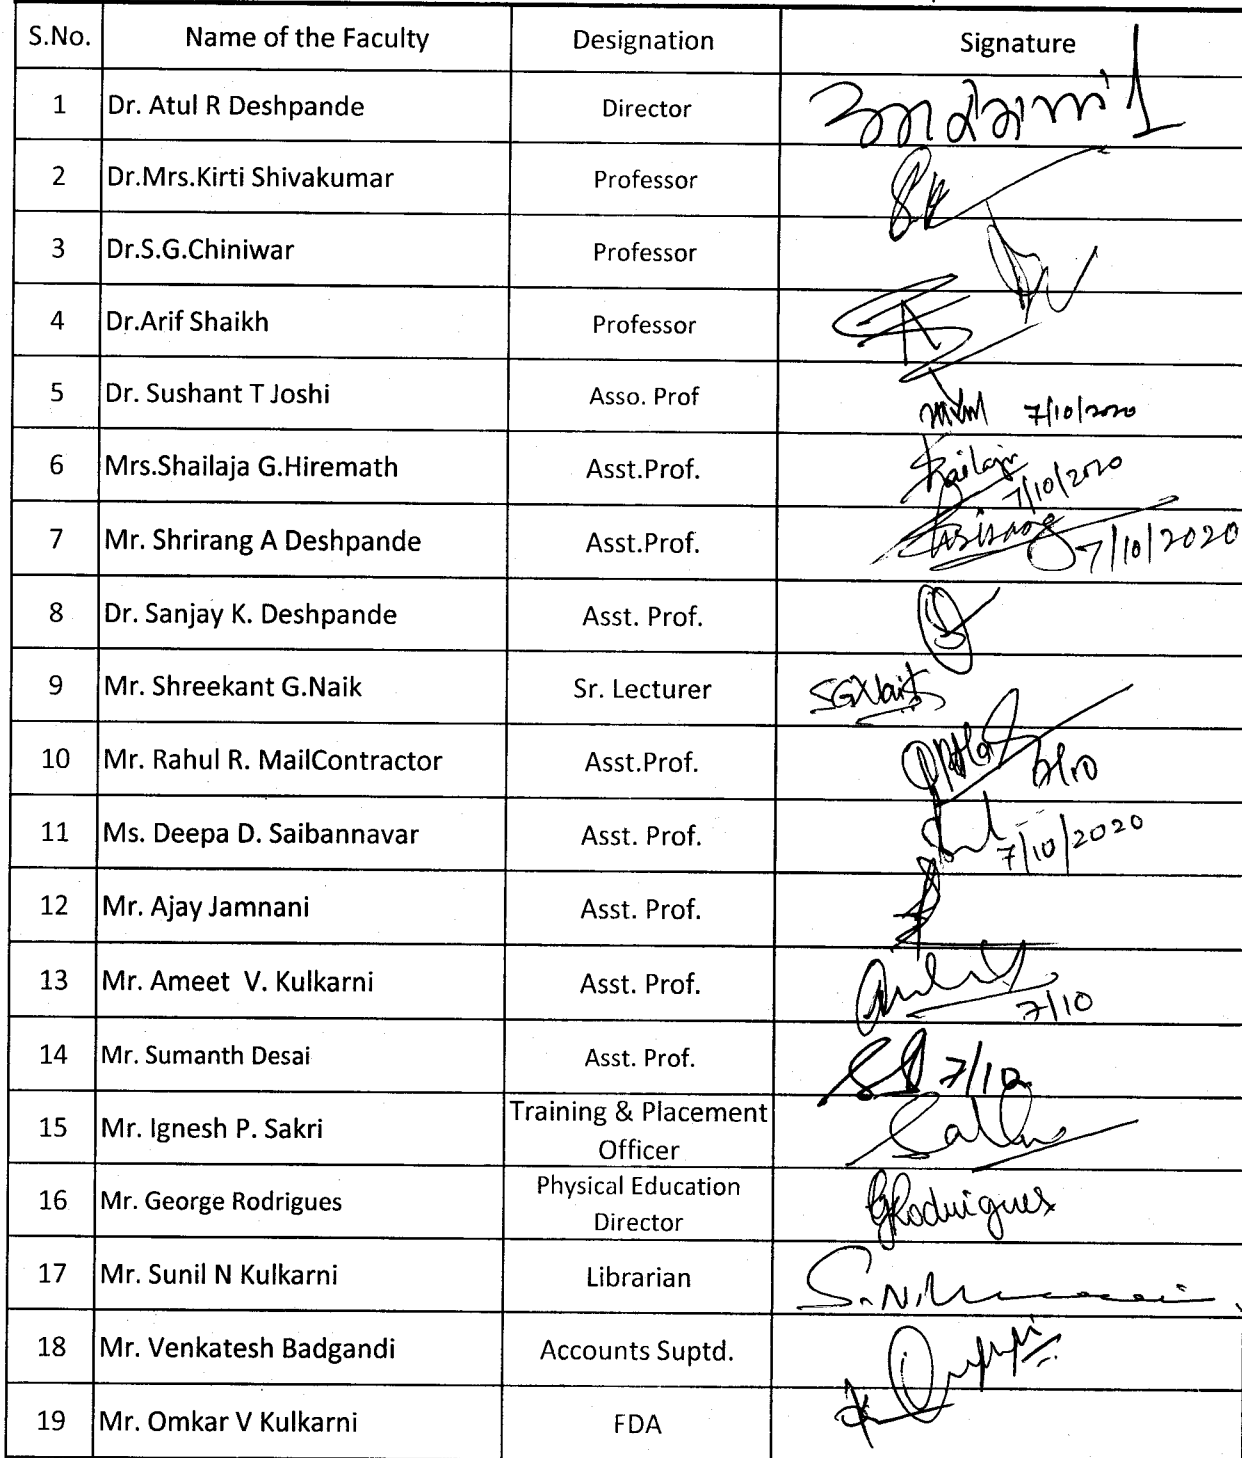 S.No. Name of the Faculty Designation Signature
1 Dr. Atul R Deshpande Director
2 Dr.Mrs.Kirti Shivakumar Professor
3 Dr.S.G.Chiniwar Professor
4 Dr.Arif Shaikh Professor
5 Dr. Sushant T Joshi Asso. Prof 7/10/2020
6 Mrs.Shailaja G.Hiremath Asst.Prof. 7/10/2020
7 Mr. Shrirang A Deshpande Asst.Prof. 7/10/2020
8 Dr. Sanjay K. Deshpande Asst. Prof.
9 Mr. Shreekant G.Naik Sr. Lecturer SGNaik
10 Mr. Rahul R. MailContractor Asst.Prof.
11 Ms. Deepa D. Saibannavar Asst. Prof. 7/10/2020
12 Mr. Ajay Jamnani Asst. Prof.
13 Mr. Ameet V. Kulkarni Asst. Prof. 7/10
14 Mr. Sumanth Desai Asst. Prof. 7/10
15 Mr. Ignesh P. Sakri Training & Placement
Officer
16 Mr. George Rodrigues Physical Education GRodrigues
Director
17 Mr. Sunil N Kulkarni Librarian
18 Mr. Venkatesh Badgandi Accounts Suptd.
19 Mr. Omkar V Kulkarni FDA